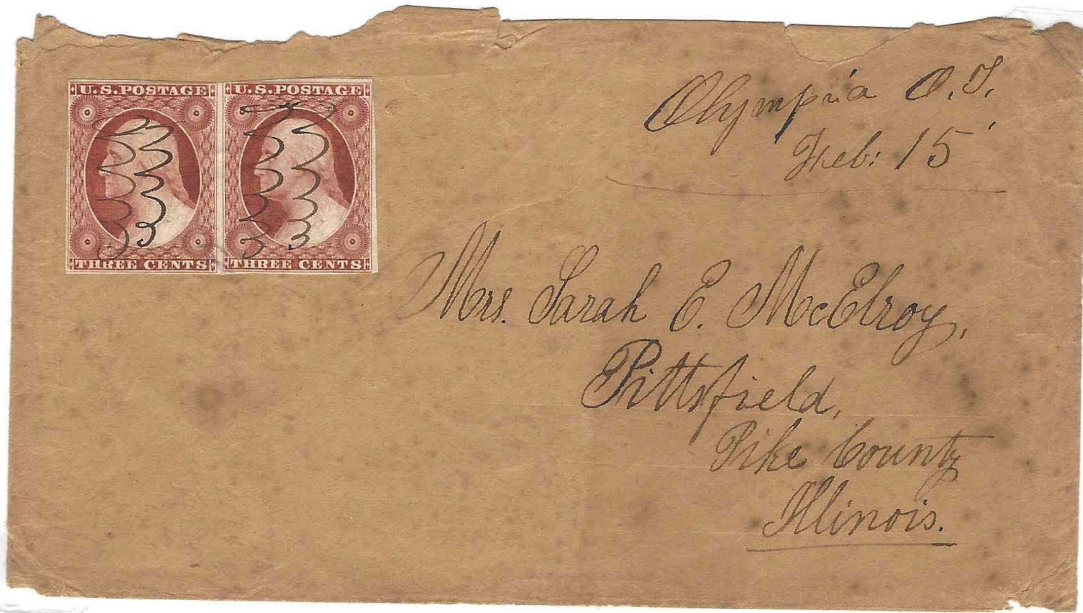 U.S.POSTAGE U.S.POSTAGE
THREE CENTS THREE CENTS
Olympia O.T.
Feb: 15
Mrs. Sarah E. McElroy,
Pittsfield,
Pike County
Illinois.